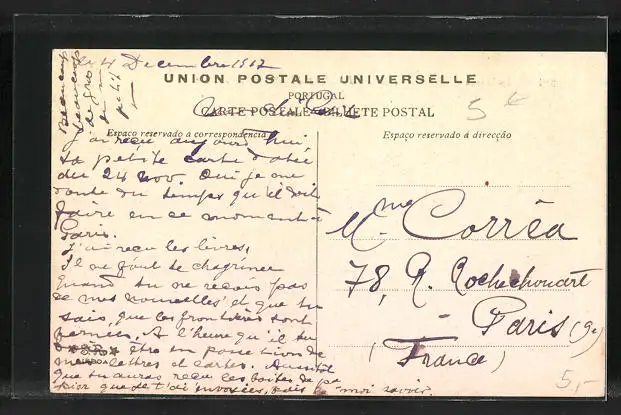 le 4 Decembre 1917
Beaucoup
beaucoup
de gros
UNION POSTALE UNIVERSELLE
PORTUGAL
CARTE POSTALE - BILHETE POSTAL
5 €
Espaço reservado á correspondencia
Espaço reservado á direcção
J'ai reçu aujourd'hui
ta petite carte datée
du 24 Nov. Oui je me
doute du temps qu'il doit
faire en ce moment à
Paris.
J'ai reçu les livres,
Il ne faut te chagriner
quand tu ne reçois pas
de mes nouvelles et que tu
sais que les frontières sont
fermées. A l'heure qu'il
être en possession de
mes lettres et cartes. Aussitôt
que tu auras reçu les boites de pa
pier que je t'ai envoyées, fais le moi savoir.
Mme Corrêa
78, R. Rochechouart
- Paris (9e)
(France)
5,-